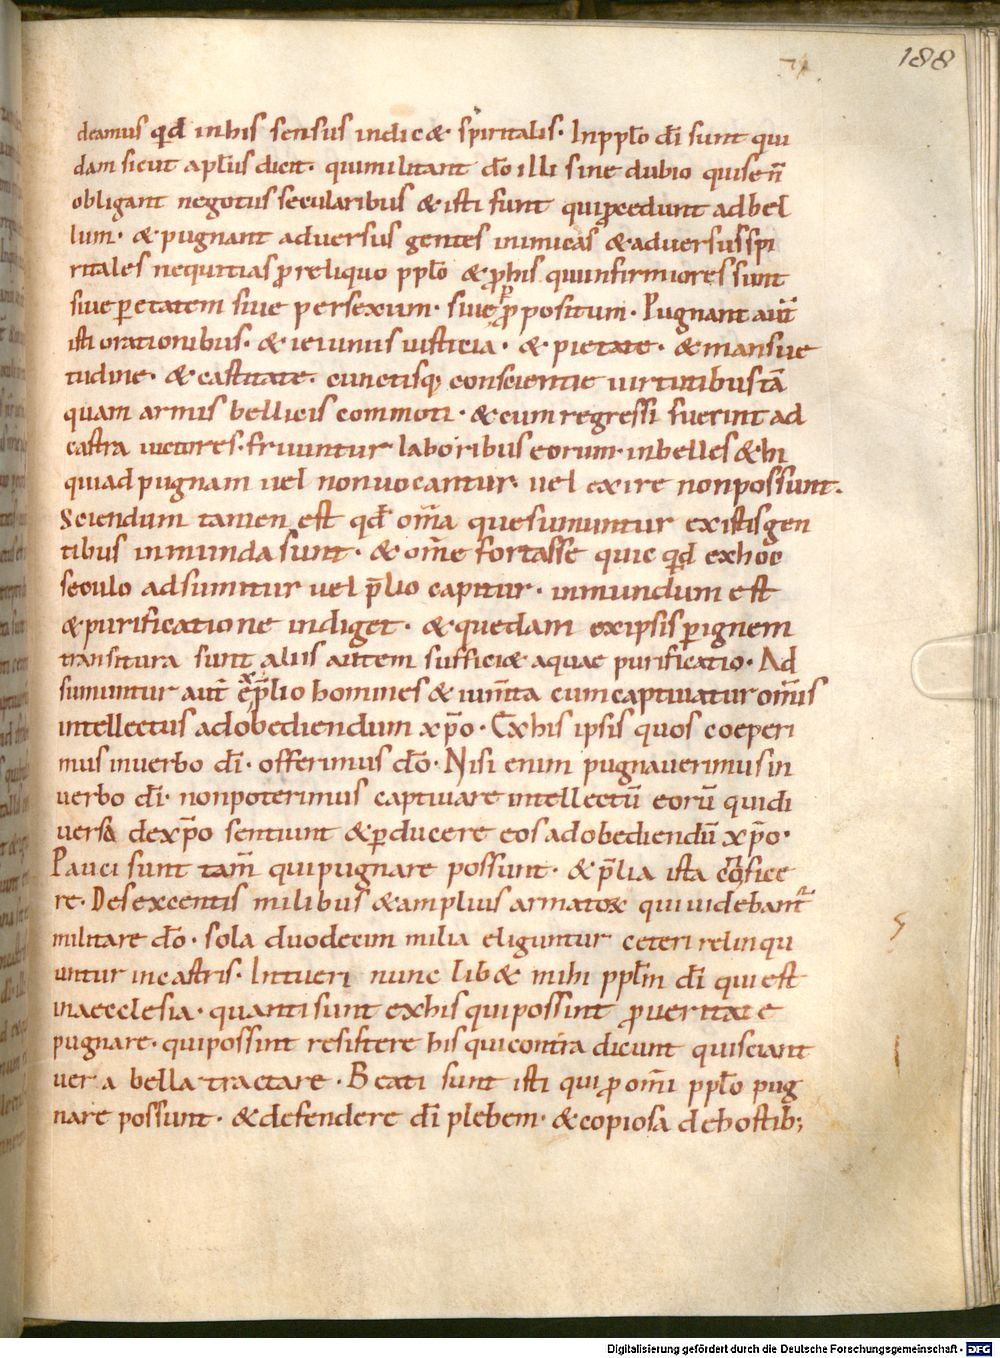 188
deamus qđ inhis sensus indic& spiritalis· Inpplō dī sunt qui
dam sicut aplūs dicit· quimilitant dō illi sine dubio quisen̄
obligant negotiis secularibus & isti sunt qui ꝓcedunt adbel
lum· & pugnant adversus gentes inimicas & adversusspi
ritales nequitias p reliquo pplō & ꝓ his quiinfirmiores sunt
sive ꝑ etatem sive persexum· sive ꝓpositum· Pugnant aut̄
isti orationibus· & ieiuniis iusticia· & pietate· & mansue
tudine· & castitate· cunctisq; conscientie virtutibus tā
quam armis bellicis commoti· & cum regressi fuerint ad
castra victores· fruuntur laboribus eorum· inbelles & hi
quiad pugnam vel nonvocantur· vel exire nonpossunt·
Sciendum tamen est qđ om̄a quesumuntur existisgen
tibus inmunda sunt· & om̄e fortasse quic qđ exhoc
seculo adsumitur vel p̄lio capitur· inmundum est
& purificatione indiget· & quedam exipsis ꝑignem
transitura sunt aliis autem suffici& aquae purificatio· Ad
sumuntur aut̄ ex p̄lio homines & ium̄ta cum captivatur om̄is
intellectus adobediendum xp̄o· Exhis ipsis quos coeperi
mus inverbo dī· offerimus dō· Nisi enim pugnaverimus in
verbo dī· nonpoterimus captivare intellectū eorū quidi
versa dexp̄o sentiunt & ꝑducere eos adobediendū xp̄o·
Pauci sunt tam̄ qui pugnare possunt· & p̄lia ista cōfice
re· Desexcentis milibus & amplius armatoꝝ qui videbant̄
militare dō· sola duodecim milia eliguntur ceteri relinqu
untur incastris· Intueri nunc lib& mihi pplm̄ dī qui est
inaecclesia· quanti sunt exhis qui possint ꝓ veritate
pugnare· quipossint resistere his qui contra dicunt quisciant
vera bella tractare· Beati sunt isti qui ꝓ om̄i pplō pug
nare possunt· & defendere dī plebem· & copiosa dehostib;
Digitalisierung gefördert durch die Deutsche Forschungsgemeinschaft · DFG